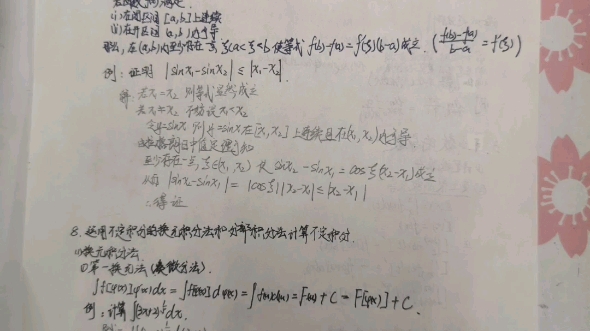 (i)在闭区间[a,b]上连续
(ii)在开区间(a,b)内可导
那么,在(a,b)内至少存在一点ξ(a<ξ<b)使等式 f(b)-f(a)=f'(ξ)(b-a)成立. (f(b)-f(a)/b-a = f'(ξ))
例:证明 |sinx₁-sinx₂| ≤ |x₁-x₂|.
若x₁=x₂ 则等式显然成立
若x₁≠x₂ 不妨设x₁<x₂
令y=sinx 则y=sinx在[x₁,x₂]上连续且在(x₁,x₂)内可导
由拉格朗日中值定理可知
至少存在一点,ξ∈(x₁,x₂) 使 sinx₂-sinx₁=cosξ(x₂-x₁)成立
从而 |sinx₂-sinx₁|=|cosξ||x₂-x₁|≤|x₂-x₁|
∴得证
8.运用不定积分的换元积分法和分部积分法计算不定积分.
(1)换元积分法.
①第一换元法(凑微分法).
∫f[φ(x)]φ'(x)dx=∫f[φ(x)]dφ(x)=∫f(u)du=F(u)+C=F[φ(x)]+C.
例:计算